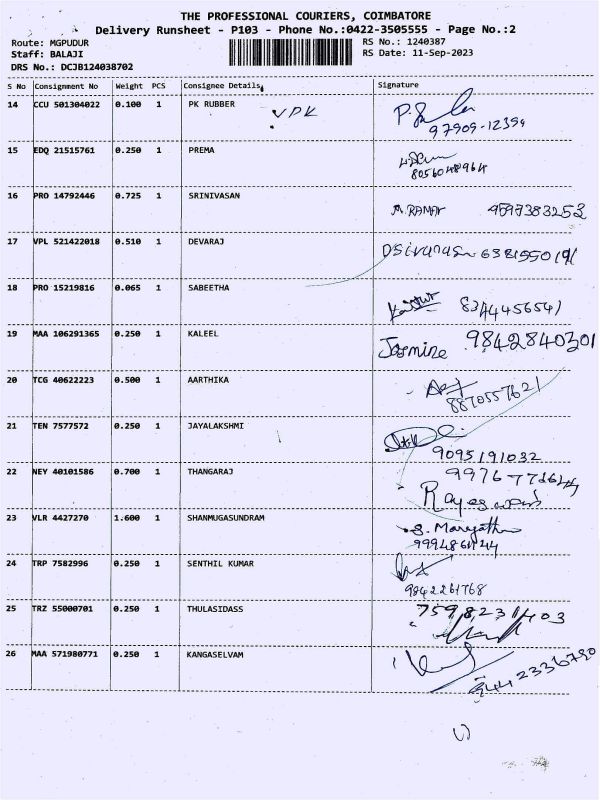 THE PROFESSIONAL COURIERS, COIMBATORE
Delivery Runsheet - P103 - Phone No.:0422-3505555 - Page No.:2
Route: MGPUDUR RS No.: 1240387
Staff: BALAJI RS Date: 11-Sep-2023
DRS No.: DCJB124038702
S No Consignment No Weight PCS Consignee Details Signature
14 CCU 501304022 0.100 1 PK RUBBER VPK
97909-12394
15 EDQ 21515761 0.250 1 PREMA
8056048964
16 PRO 14792446 0.725 1 SRINIVASAN A. RAMAN 9597383253
17 VPL 521422018 0.510 1 DEVARAJ
18 PRO 15219816 0.065 1 SABEETHA
19 MAA 106291365 0.250 1 KALEEL Jasmine 9842840301
20 TCG 40622223 0.500 1 AARTHIKA
8870557621
21 TEN 7577572 0.250 1 JAYALAKSHMI
9095191032
22 NEY 40101586 0.700 1 THANGARAJ
23 VLR 4427270 1.600 1 SHANMUGASUNDRAM
24 TRP 7582996 0.250 1 SENTHIL KUMAR
9842261768
25 TRZ 55000701 0.250 1 THULASIDASS 7598231403
26 MAA 571980771 0.250 1 KANGASELVAM